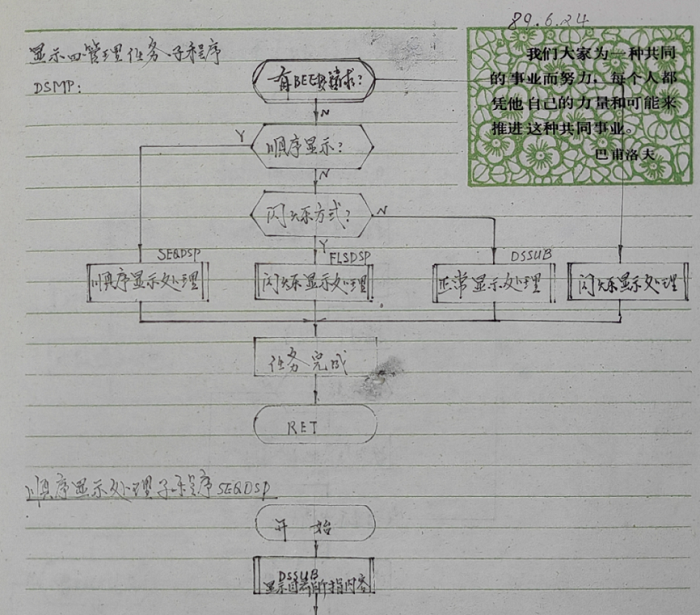 89.6.24
显示四管理任务子程序
DSMP:
有BEEP请求?
我们大家为一种共同
的事业而努力,每个人都
凭他自己的力量和可能来
推进这种共同事业。
巴甫洛夫
N
Y
顺序显示?
N
闪烁方式?
N
Y
SEQDSP
FLSDSP
DSSUB
顺序显示处理
闪烁显示处理
正常显示处理
闪烁显示处理
任务完成
RET
顺序显示处理子程序SEQDSP
开始
DSSUB
显示 所指内容